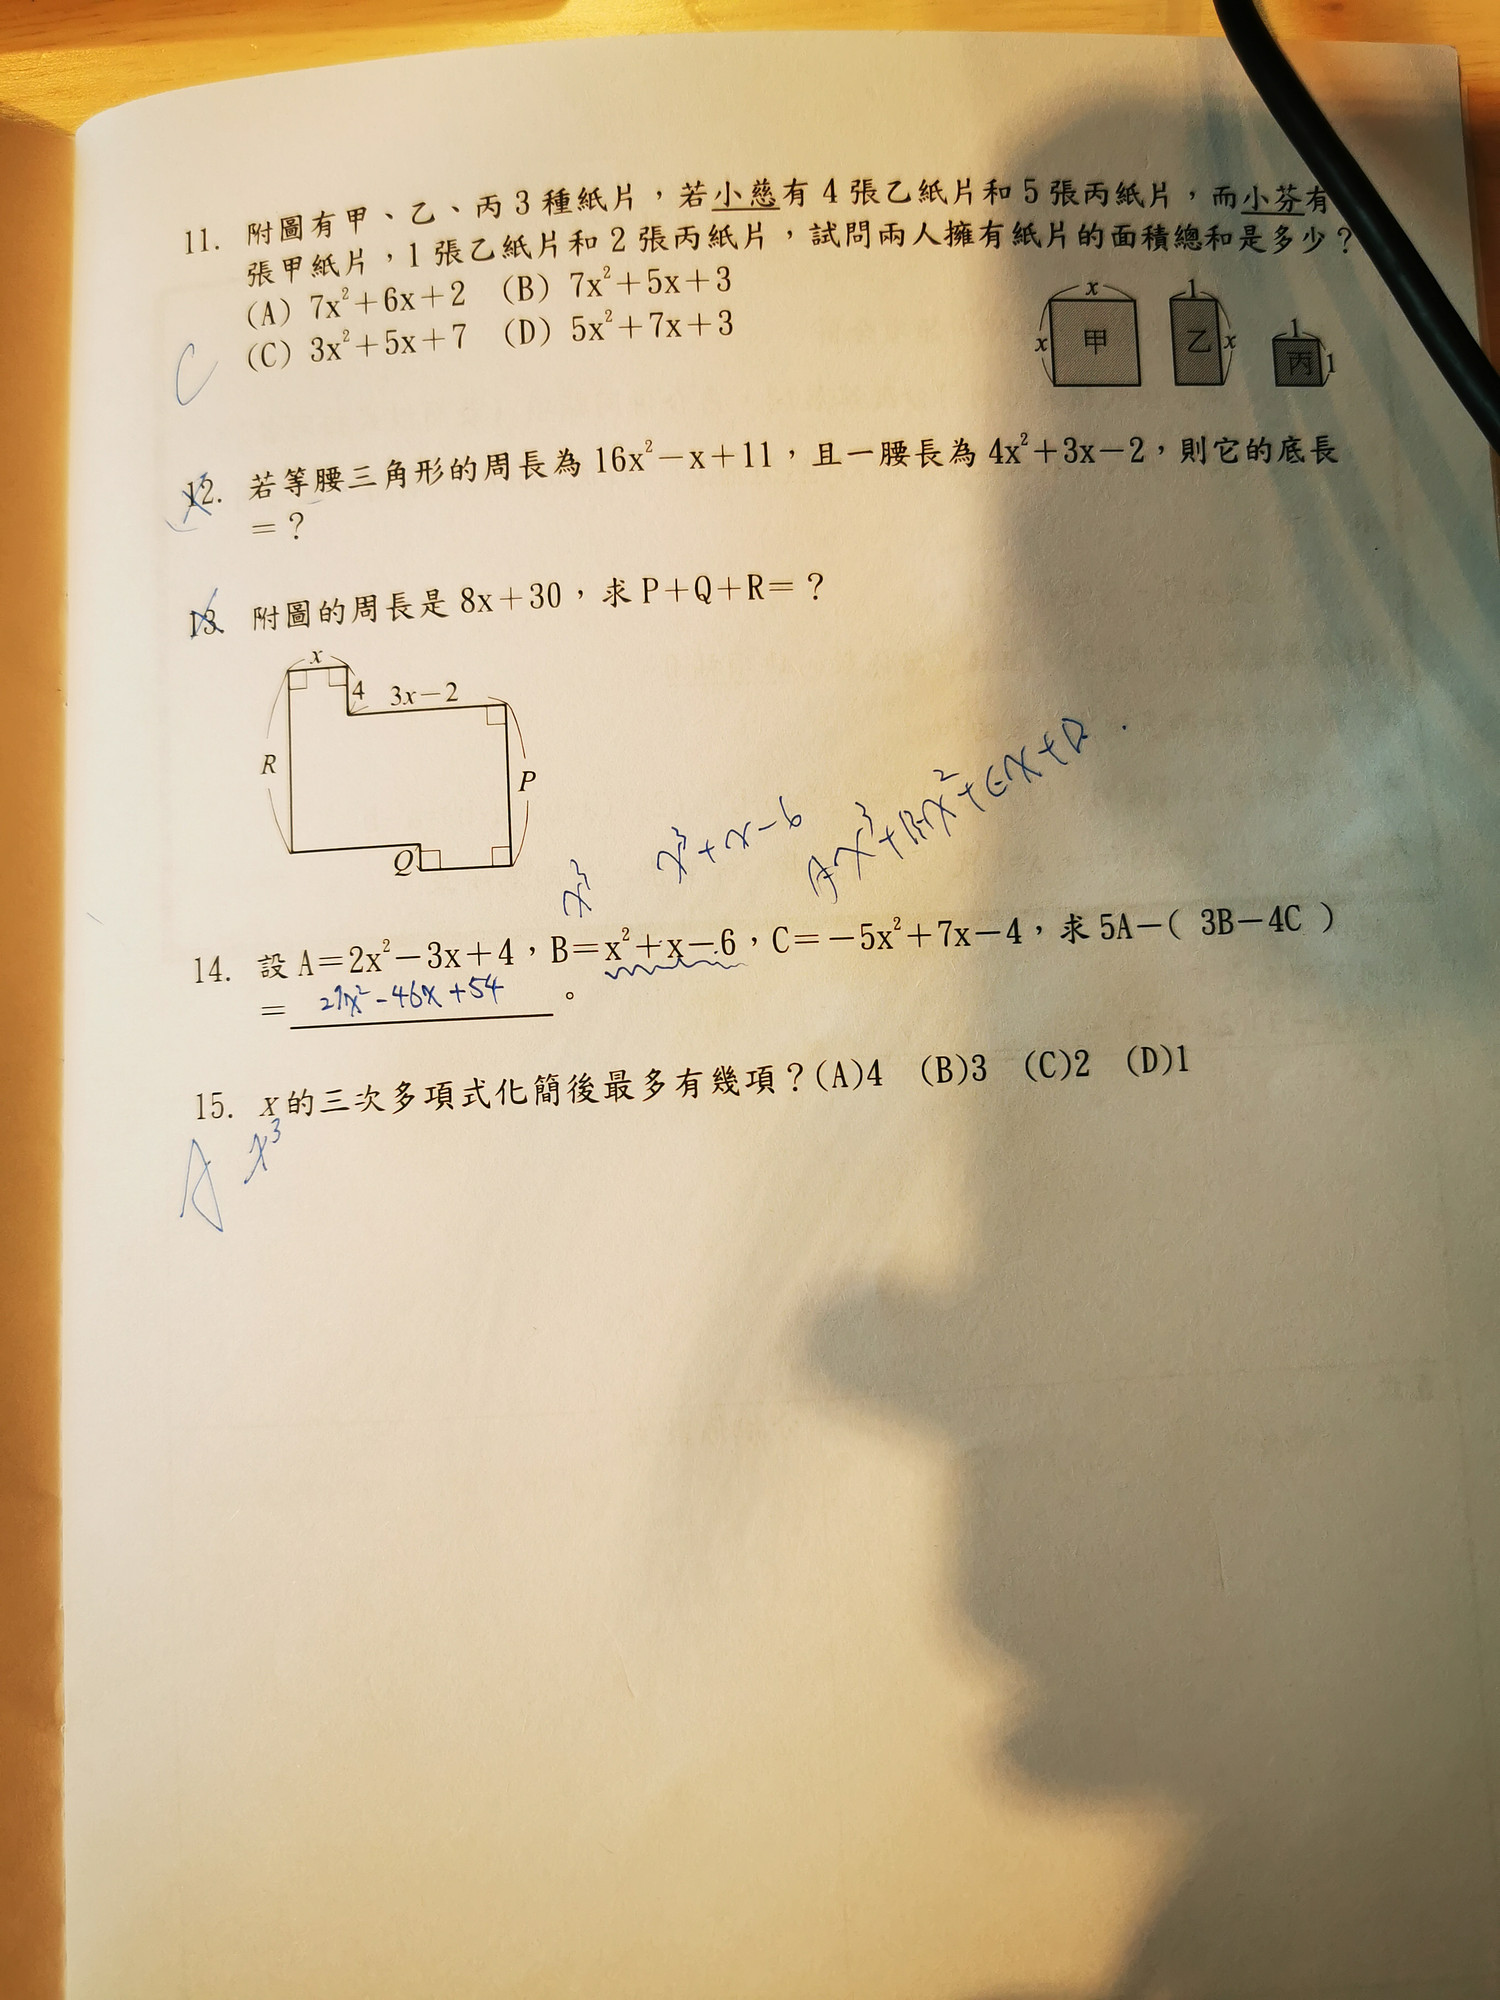 11. 附圖有甲、乙、丙 3 種紙片，若小慈有 4 張乙紙片和 5 張丙紙片，而小芬有
張甲紙片，1 張乙紙片和 2 張丙紙片，試問兩人擁有紙片的面積總和是多少？
(A) 7x²+6x+2 (B) 7x²+5x+3
(C) 3x²+5x+7 (D) 5x²+7x+3
C
x
x
甲
1
乙
x
1
丙
1
12. 若等腰三角形的周長為 16x²－x＋11，且一腰長為 4x²＋3x－2，則它的底長
＝？
13. 附圖的周長是 8x＋30，求 P＋Q＋R＝？
x
4
3x－2
R
P
Q
x³
x³+x-6
Ax³+Bx²+Cx+D
14. 設 A＝2x²－3x＋4，B＝x²＋x－6，C＝－5x²＋7x－4，求 5A－( 3B－4C )
＝ 27x²-46x+54 。
15. x 的三次多項式化簡後最多有幾項？(A)4 (B)3 (C)2 (D)1
A
x³